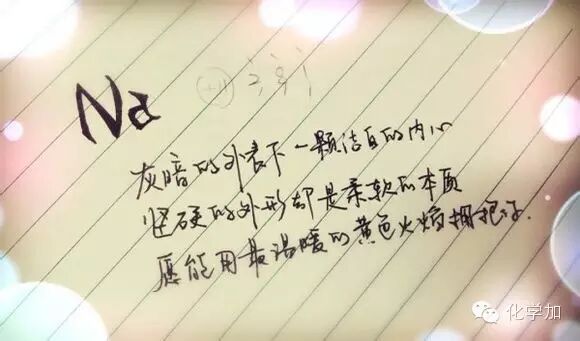 Na +11 2 8 1
灰暗的外表下一颗洁白的内心
坚硬的外形却是柔软的本质
愿能用最温暖的黄色火焰拥抱你.
化学加